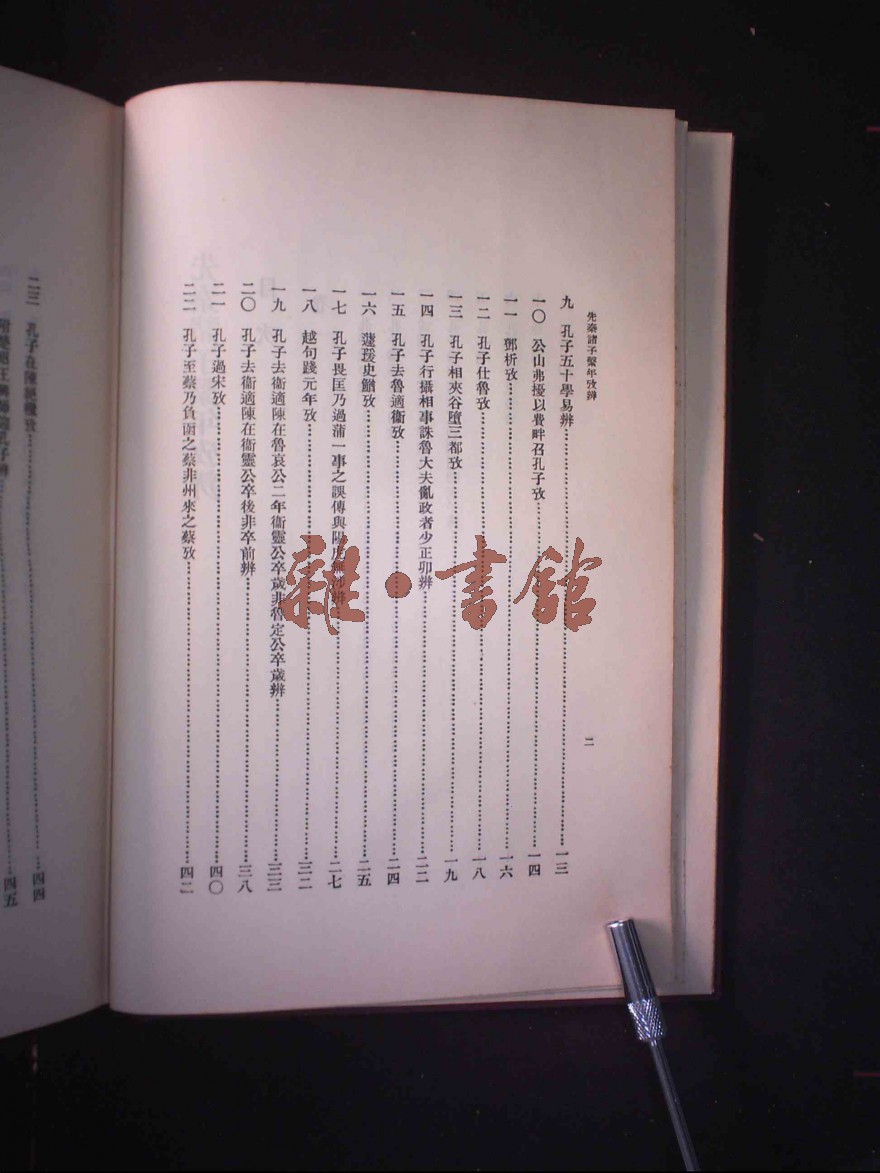 先秦諸子繫年攷辨
二
九 孔子五十學易辨……一三
一〇 公山弗擾以費畔召孔子攷……一四
一一 鄧析攷……一六
一二 孔子仕魯攷……一八
一三 孔子相夾谷墮三都攷……一九
一四 孔子行攝相事誅魯大夫亂政者少正卯辨……二二
一五 孔子去魯適衞攷……二四
一六 蘧瑗史鰌攷……二五
一七 孔子畏匡乃過蒲一事之誤傳與陽虎無涉辨……二七
一八 越句踐元年攷……三二
一九 孔子去衞適陳在魯哀公二年衞靈公卒歲非魯定公卒歲辨……三三
二〇 孔子去衞適陳在衞靈公卒後非卒前辨……三八
二一 孔子過宋攷……四〇
二二 孔子至蔡乃負函之蔡非州來之蔡攷……四二
二三 孔子在陳絕糧攷……四四
孔子辨……四五
雜·書館